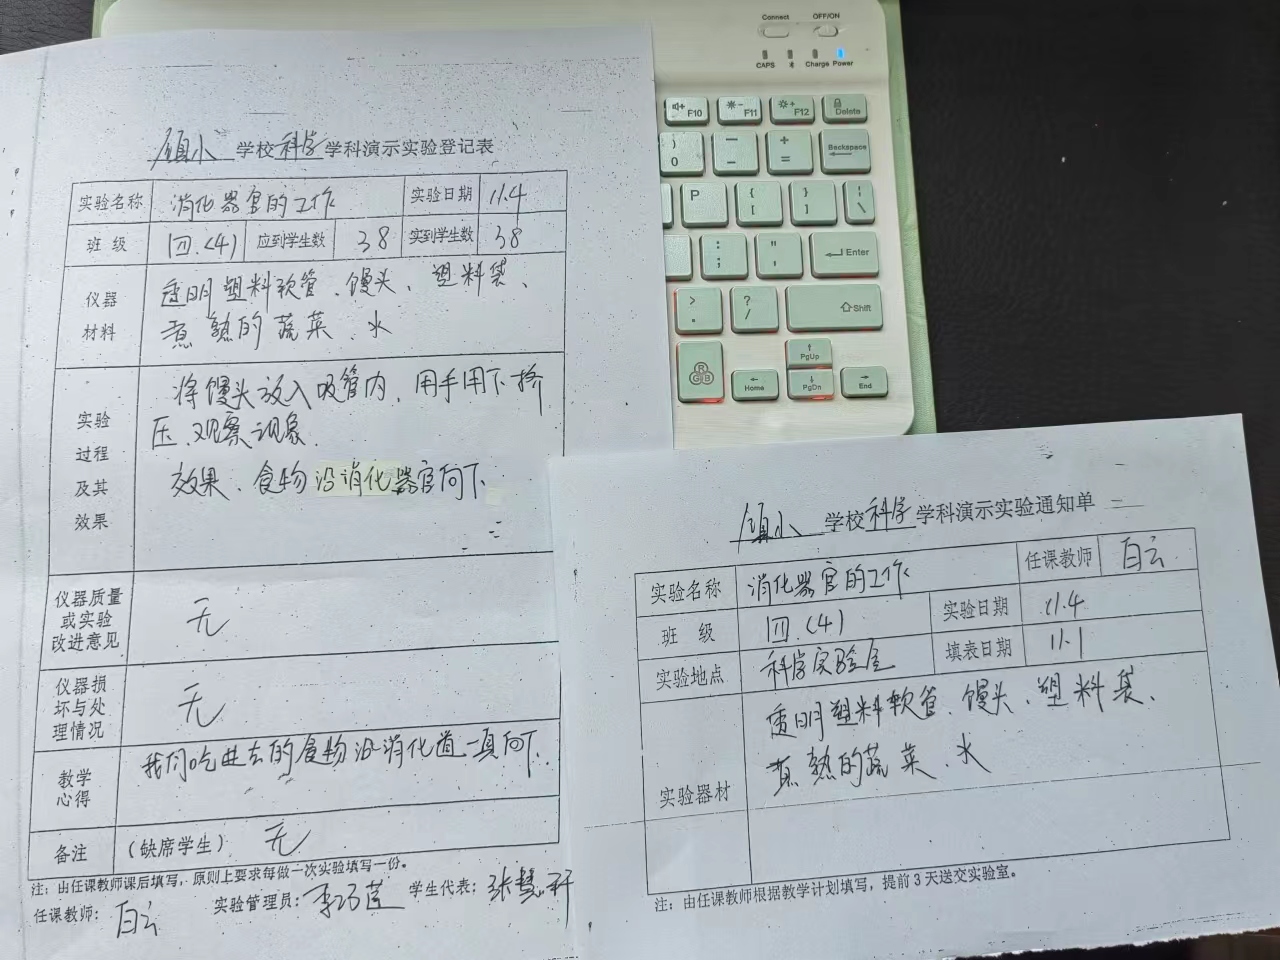 Connect OFF/ON
CAPS Charge Power
F10 F11 F12 Delete
) 0 _ - + = Backspace
P { [ } ] | \
: ; " , Enter
> . ? / Shift
RGB Home PgUp PgDn End
镇小 学校 科学 学科演示实验登记表
实验名称 消化器官的工作 实验日期 11.4
班 级 四.(4) 应到学生数 38 实到学生数 38
仪器材料 透明塑料软管、馒头、塑料袋、
煮熟的蔬菜、水
实验过程及其效果 将馒头放入吸管内,用手用下挤
压、观察现象.
效果、食物沿消化器官向下
仪器质量或实验改进意见 无
仪器损坏与处理情况 无
教学心得 我们吃进去的食物沿消化道一直向下.
备注 (缺席学生) 无
注:由任课教师课后填写,原则上要求每做一次实验填写一份。
任课教师: 白云 实验管理员: 李巧莲 学生代表: 张慧研
镇小 学校 科学 学科演示实验通知单
实验名称 消化器官的工作 任课教师 白云
班 级 四.(4) 实验日期 11.4
实验地点 科学实验室 填表日期 11.1
实验器材 透明塑料软管、馒头、塑料袋、
煮熟的蔬菜、水
注:由任课教师根据教学计划填写,提前3天送交实验室。